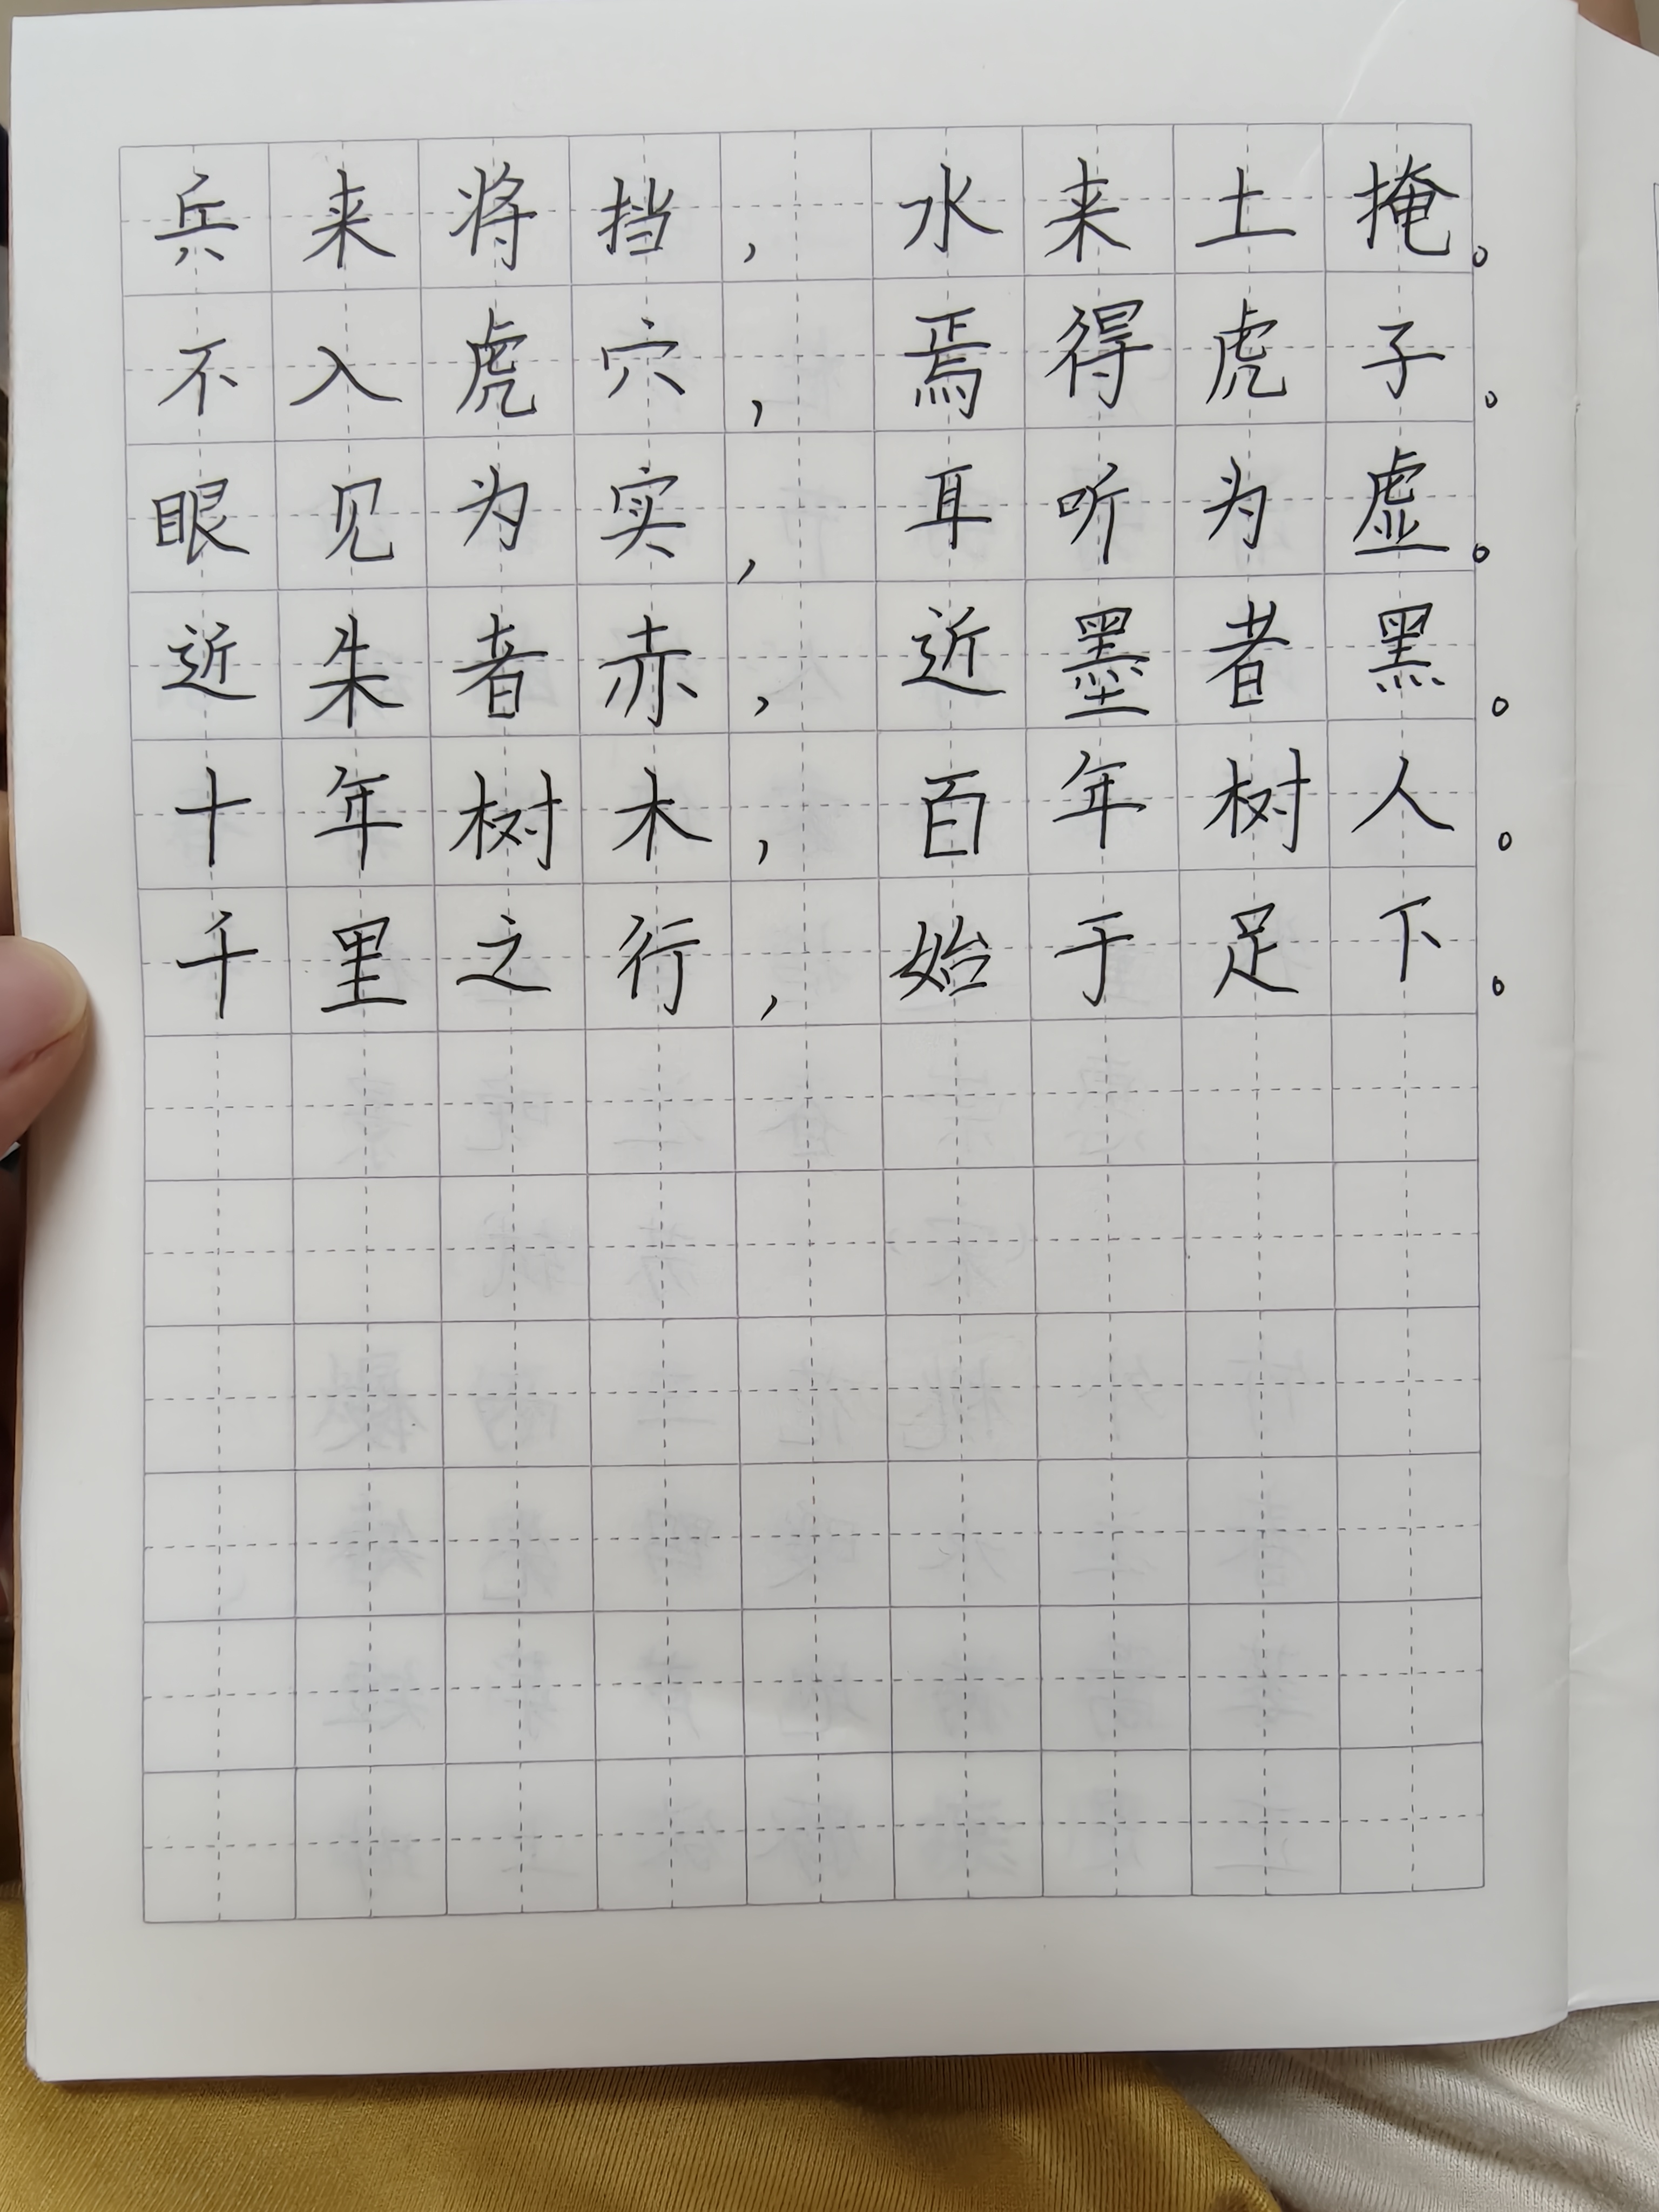 兵来将挡，水来土掩。
不入虎穴，焉得虎子。
眼见为实，耳听为虚。
近朱者赤，近墨者黑。
十年树木，百年树人。
千里之行，始于足下。